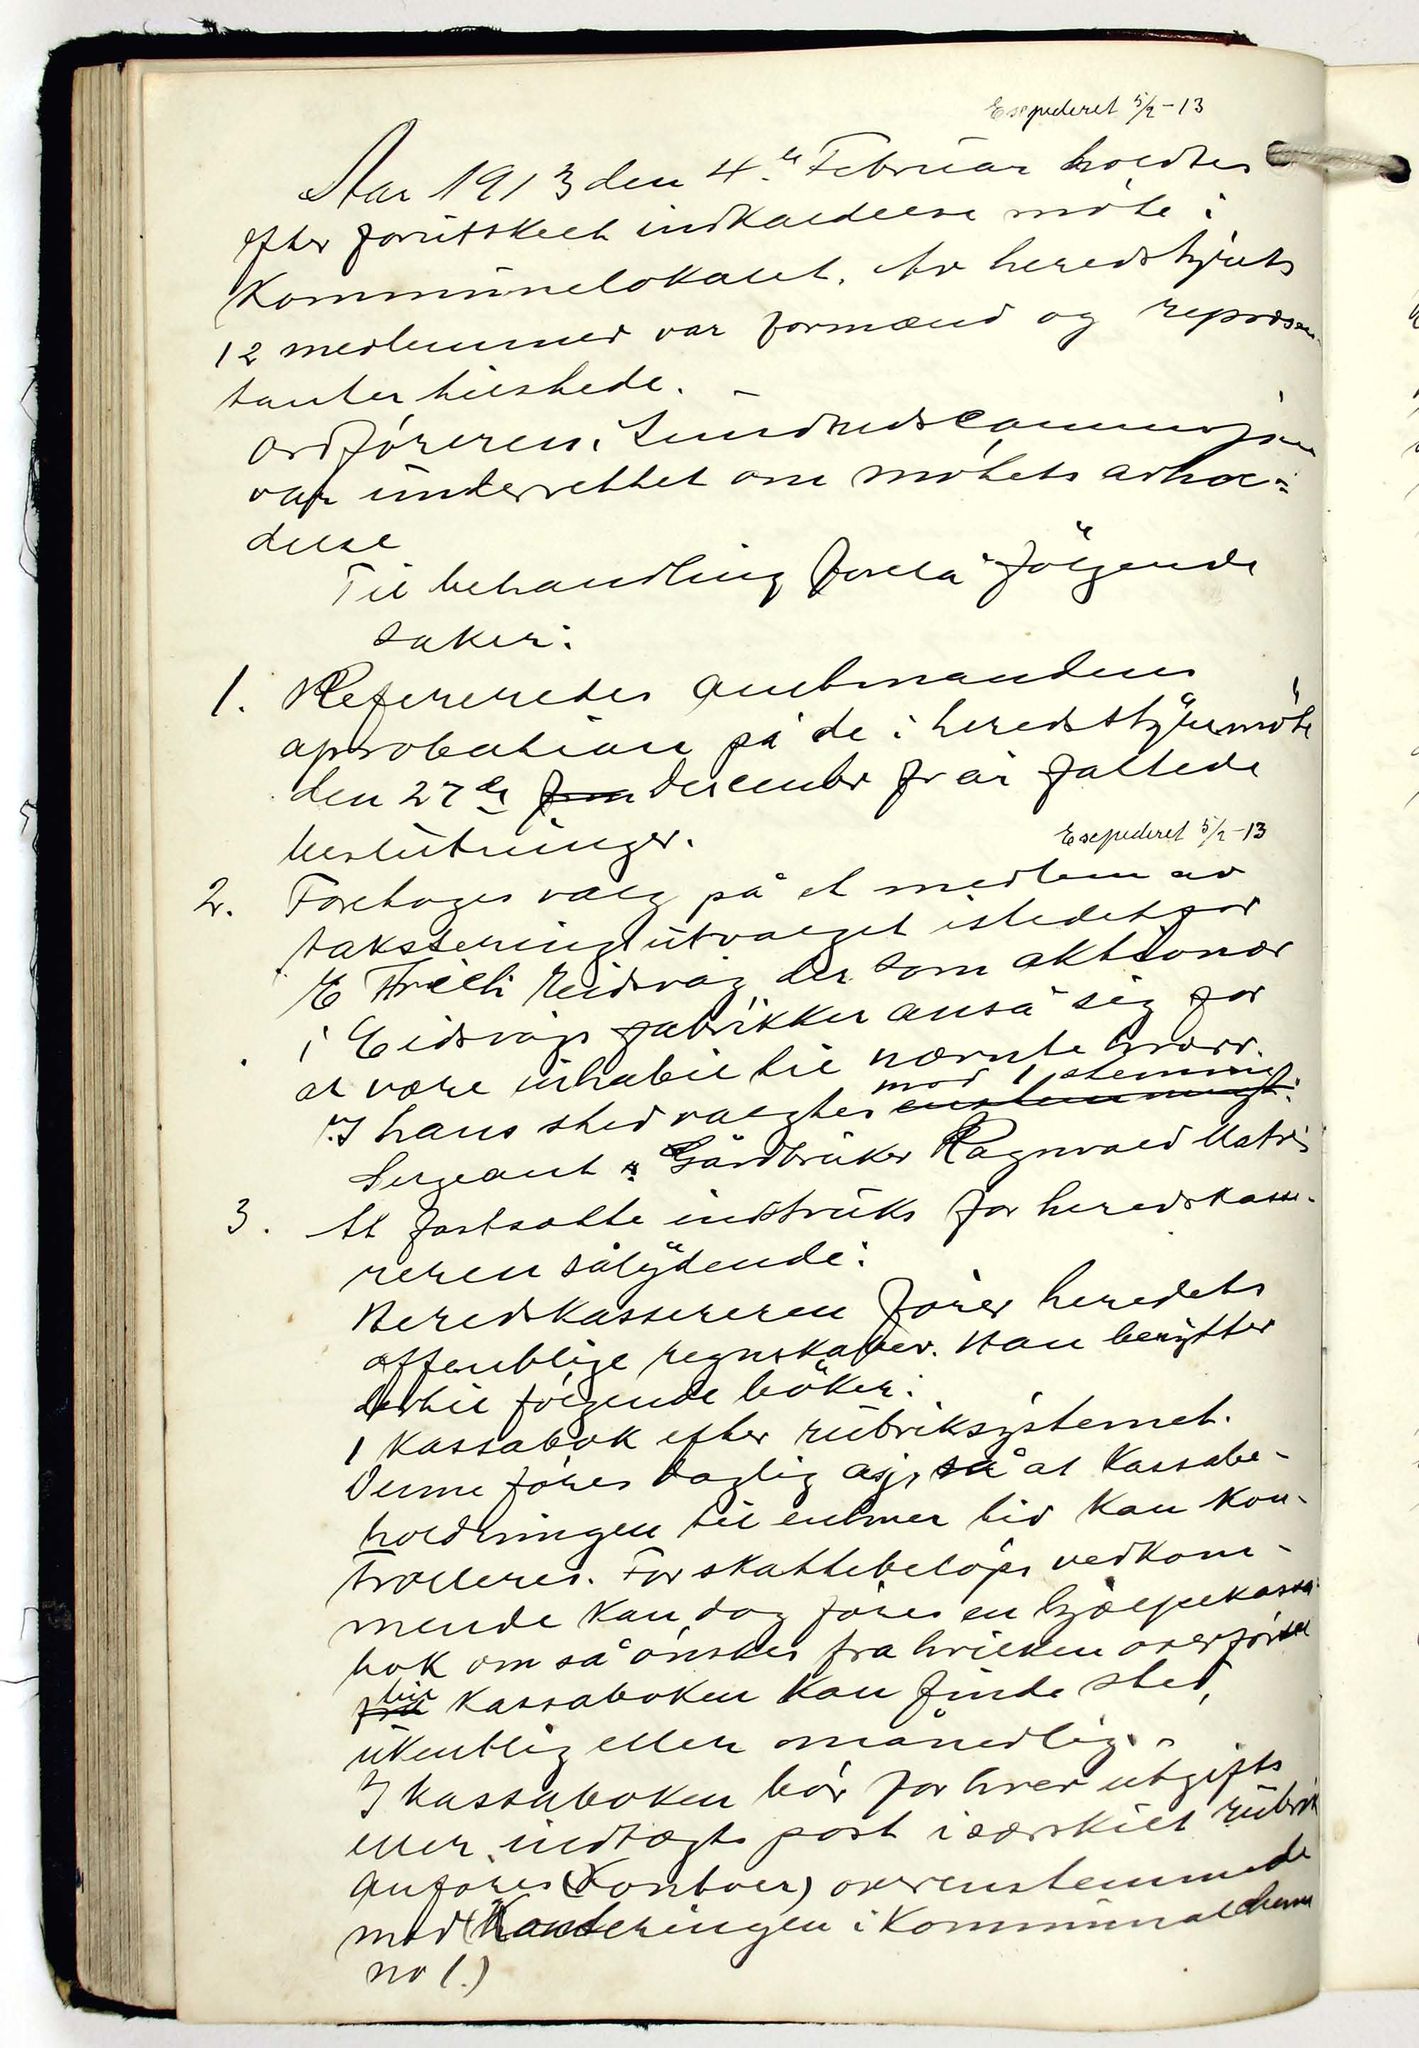 Expederet 5/2-13
Aar 1913 den 4de Februar holdtes
efter forutskeet indkaldelse møte i
Kommunelokalet. Av heredstyrets
12 medlemmer var formænd og repræsen-
tanter tilstede. –
Ordføreren i Sundhedscommisjonen
var underrettet om møtets avhol-
delse
Til behandling forelå følgende
saker:
1. Refereredes amtmandens
aprobation på de i heredstyremøte
den 27de fra december f år fattede
beslutninger.
Expederet 5/2-13
2. Foretoges valg på et medlem av
takseringsutvalget istedetfor
E Friele Eidsvåg der som aktionær
i Eidsvågs fabrikker anså sig for
at være inhabil til nævnte hverv.
mod 1 stemme
I hans sted valgtes enstemmigt:
Sergeant & Gårdbruker Ragnvald Matris
3. At fastsatte instruks for heredskasse-
reren sålydende:
Heredskassereren fører heredets
offentlige regnskaper. Han benytter
dertil følgende bøker:
1 Kassabok efter rubriksystemet.
Denne føres daglig aj, så at Kassabe-
holdningen til enhver tid kan kon-
trolleres. For skattebeløps vedkom-
mende kan dog føres en hjælpekassa-
bok om så ønskes fra hvilken overførsel
til
fra kassaboken kan finde sted
ukentlig eller månedlig.
I kassaboken bør for hver utgifts
eller indtægts post i særskilt rubrik
anføres (Kontoer) overenstemmende
med (Konteringen i Kommunalskema
no 1.)